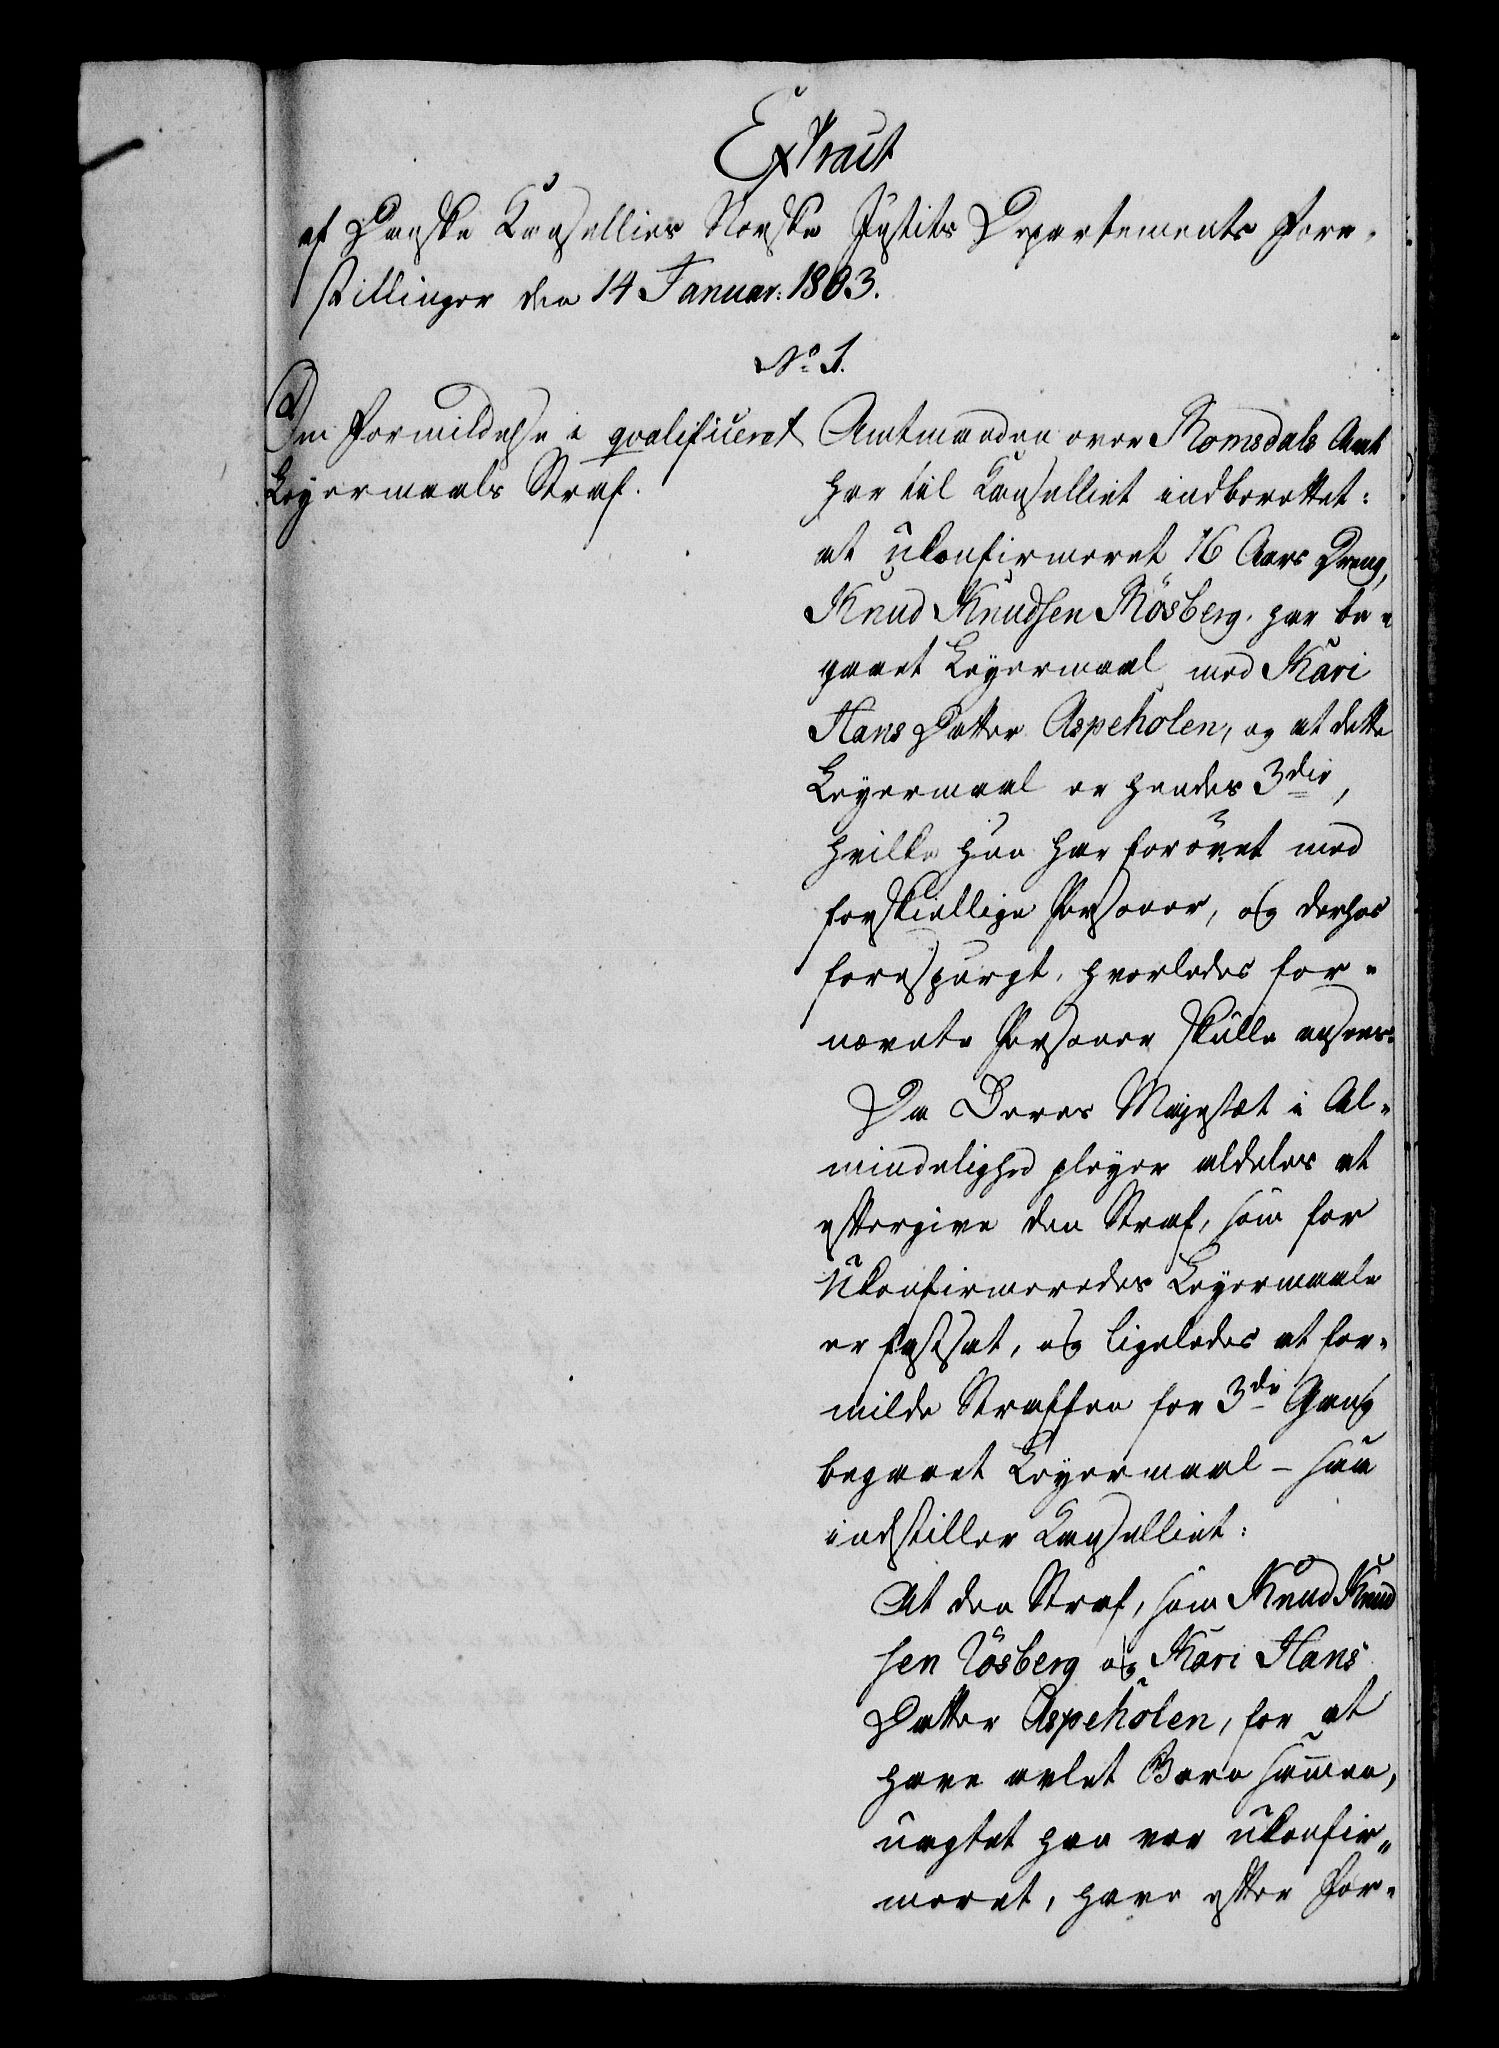 Extract
af Danske Cancellies Norske Justits Departements Fore-
stillinger den 14 Januar: 1803.
No 1.
Om Formildelse i qvalificeret
Leyermaals Straf.
Amtmanden over Romsdals Amt
har til Cancelliet indberettet:
at ukonfirmeret 16 Aars Dreng,
Knud Knudsen Rösberg har be-
gaaet Leyermaal med Kari
Hans Datter Aspeholen, og at dette
Leyermaal er hendes 3die,
hvilke hun har forövet med
forskiellige Personer, og derhos
forespurgt, hvorledes for-
nevnte Personer skulle ansees.
Da Deres Majestæt i Al-
mindelighed pleyer aldeles at
eftergive den Straf, som for
Ukonfirmeredes Leyermaale
er fastsat, og ligeledes at for-
milde Straffen for 3de Gang
begaaet Leyermaal - saa
indstiller Cancelliet:
At den Straf, som Knud Knud
sen Rösberg og Kari Hans
Datter Aspeholen, for at
have avlet Barn sammen,
uagtet han var ukonfir-
meret, have efter For-